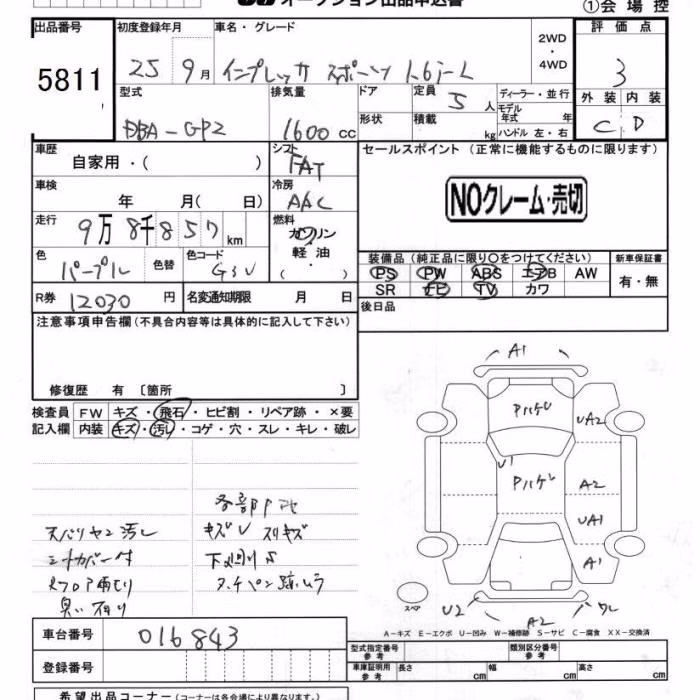 オークション出品申込書
①会場控
出品番号 初度登録年月 車名・グレード 2WD・4WD 評価点
5811 25 9月 インプレッサ スポーツ 1.6i-L 3
型式 排気量 ドア 定員 5人 ディーラー・並行 外装 内装
DBA-GP2 1600cc 形状 積載 kg モデル年式 年 ハンドル 左・右 C D
車歴 自家用・( ) シフト FAT セールスポイント (正常に機能するものに限ります)
車検 年 月( 日) 冷房 AAC NOクレーム・売切
走行 9万8千857km 燃料 ガソリン 軽油・( )
色 パープル 色替 色コード G3U 装備品(純正品に限り○をつけてください) 新車保証書
PS PW ABS エアB AW 有・無
SR ナビ TV カワ
R券 12030円 名変通知期限 月 日 後日品
注意事項申告欄(不具合内容等は具体的に記入して下さい)
修復歴 有 〔箇所 〕
検査員 FW キズ・飛石・ヒビ割・リペア跡・×要
記入欄 内装 キズ・汚レ・コゲ・穴・スレ・キレ・破レ
A1
PハゲU
UA2
U1
Pハゲ
A2
UA1
A1
U2
A2
ワレ
スペア
キズU スリキズ
シートカバー付
A-キズ E-エクボ U-凹み W-補修跡 S-サビ C-腐食 XX-交換済
車台番号 016843
登録番号
型式指定番号 参考 類別区分番号 参考
車庫証明用 参考 長さ cm 幅 cm 高さ cm
希望出品コーナー(コーナーは各会場により異なります。)